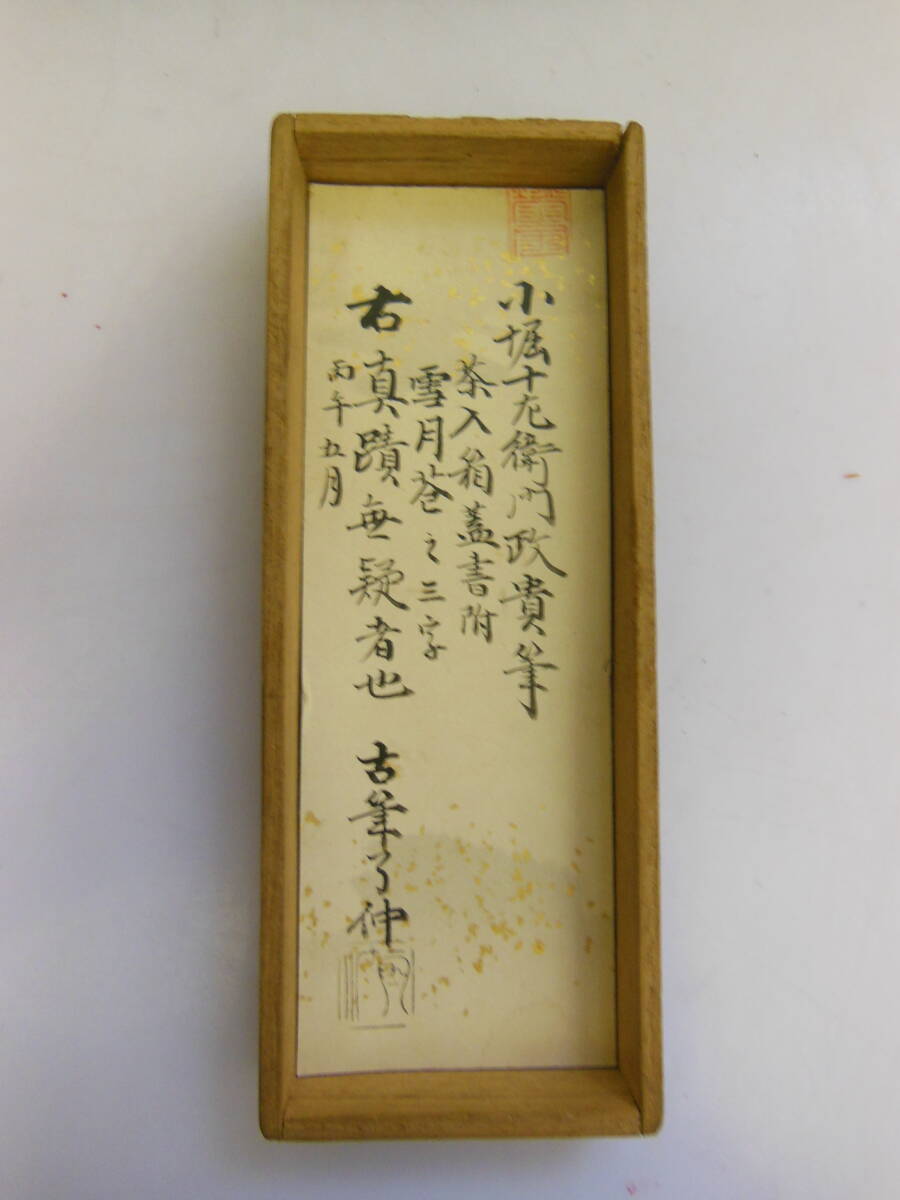 小堀十左衛門政貴筆
茶入箱蓋書附
雪月苍之三字
右真蹟無疑者也 古筆了仲
丙午五月